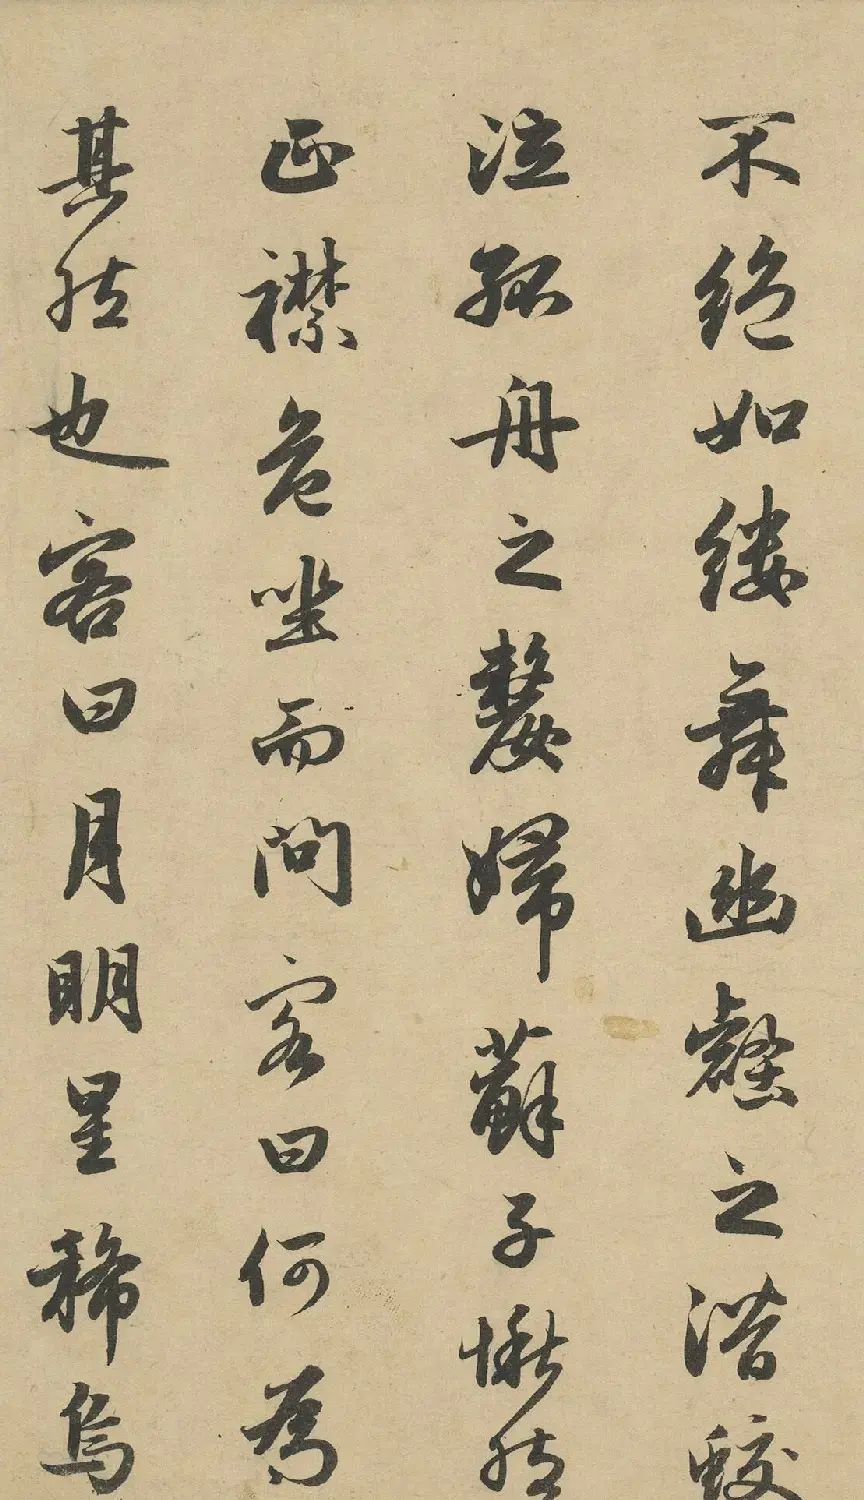 不絕如縷舞幽壑之潛蛟
泣孤舟之嫠婦蘇子愀然
正襟危坐而問客曰何為
其然也客曰月明星稀烏